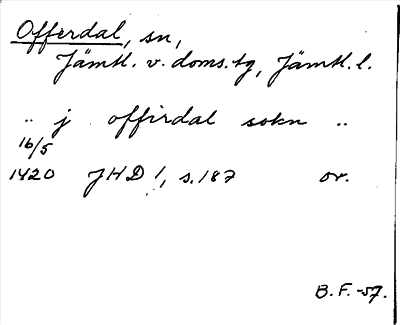 Offerdal, sn,
Jämtl. v. doms.tg, Jämtl. l.
.. j offirdal sokn ..
16/5
1420 JHD 1, s.187 or.
B.F.-57.